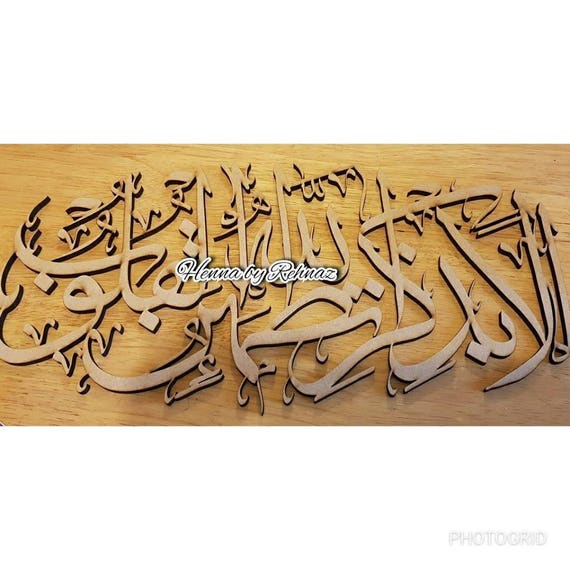 الا بذكر الله تطمئن القلوب
Henna by Rehnaz
PHOTOGRID